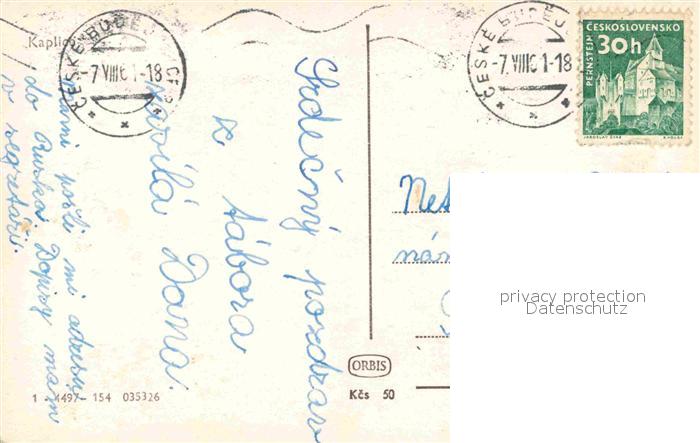 Kaplice
ČESKÉ BUDĚJ
-7.VIII61-18
ČESKÉ BUDĚJ
-7.VIII61-18
ČESKOSLOVENSKO
PERNŠTEJN
30h
Srdečný pozdrav
z tábora
posílá Dana.
Mami pošli mi adresu
do Ruska. Dopisy mám
v segretáři.
nám
ORBIS
Kčs 50
1 - 4497 - 154 035326
privacy protection
Datenschutz